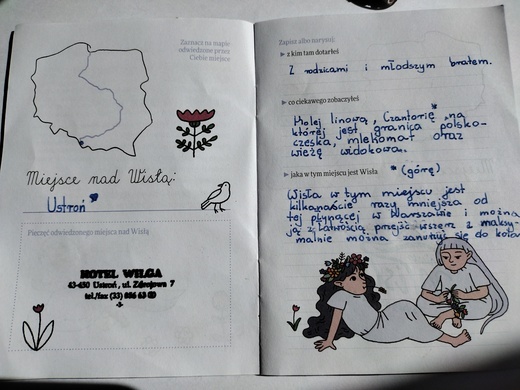 Zaznacz na mapie
odwiedzone przez
Ciebie miejsce
Miejsce nad Wisłą:
Ustroń
Pieczęć odwiedzonego miejsca nad Wisłą
HOTEL WILGA
43-450 Ustroń, ul. Zdrojowa 7
tel./fax (33) 886 63
-3-
Zapisz albo narysuj:
z kim tam dotarłeś
Z rodzicami i młodszym bratem.
co ciekawego zobaczyłeś
Kolej linową, Czantorię * na
której jest granica polsko-
czeska, mlekomat oraz
wieżę widokową.
jaka w tym miejscu jest Wisła
* (górę)
Wisła w tym miejscu jest
kilkanaście razy mniejsza od
tej płynącej w Warszawie i można
ją z łatwością przejść wszerz z maksy-
malnie można zanurzyć się do kolan